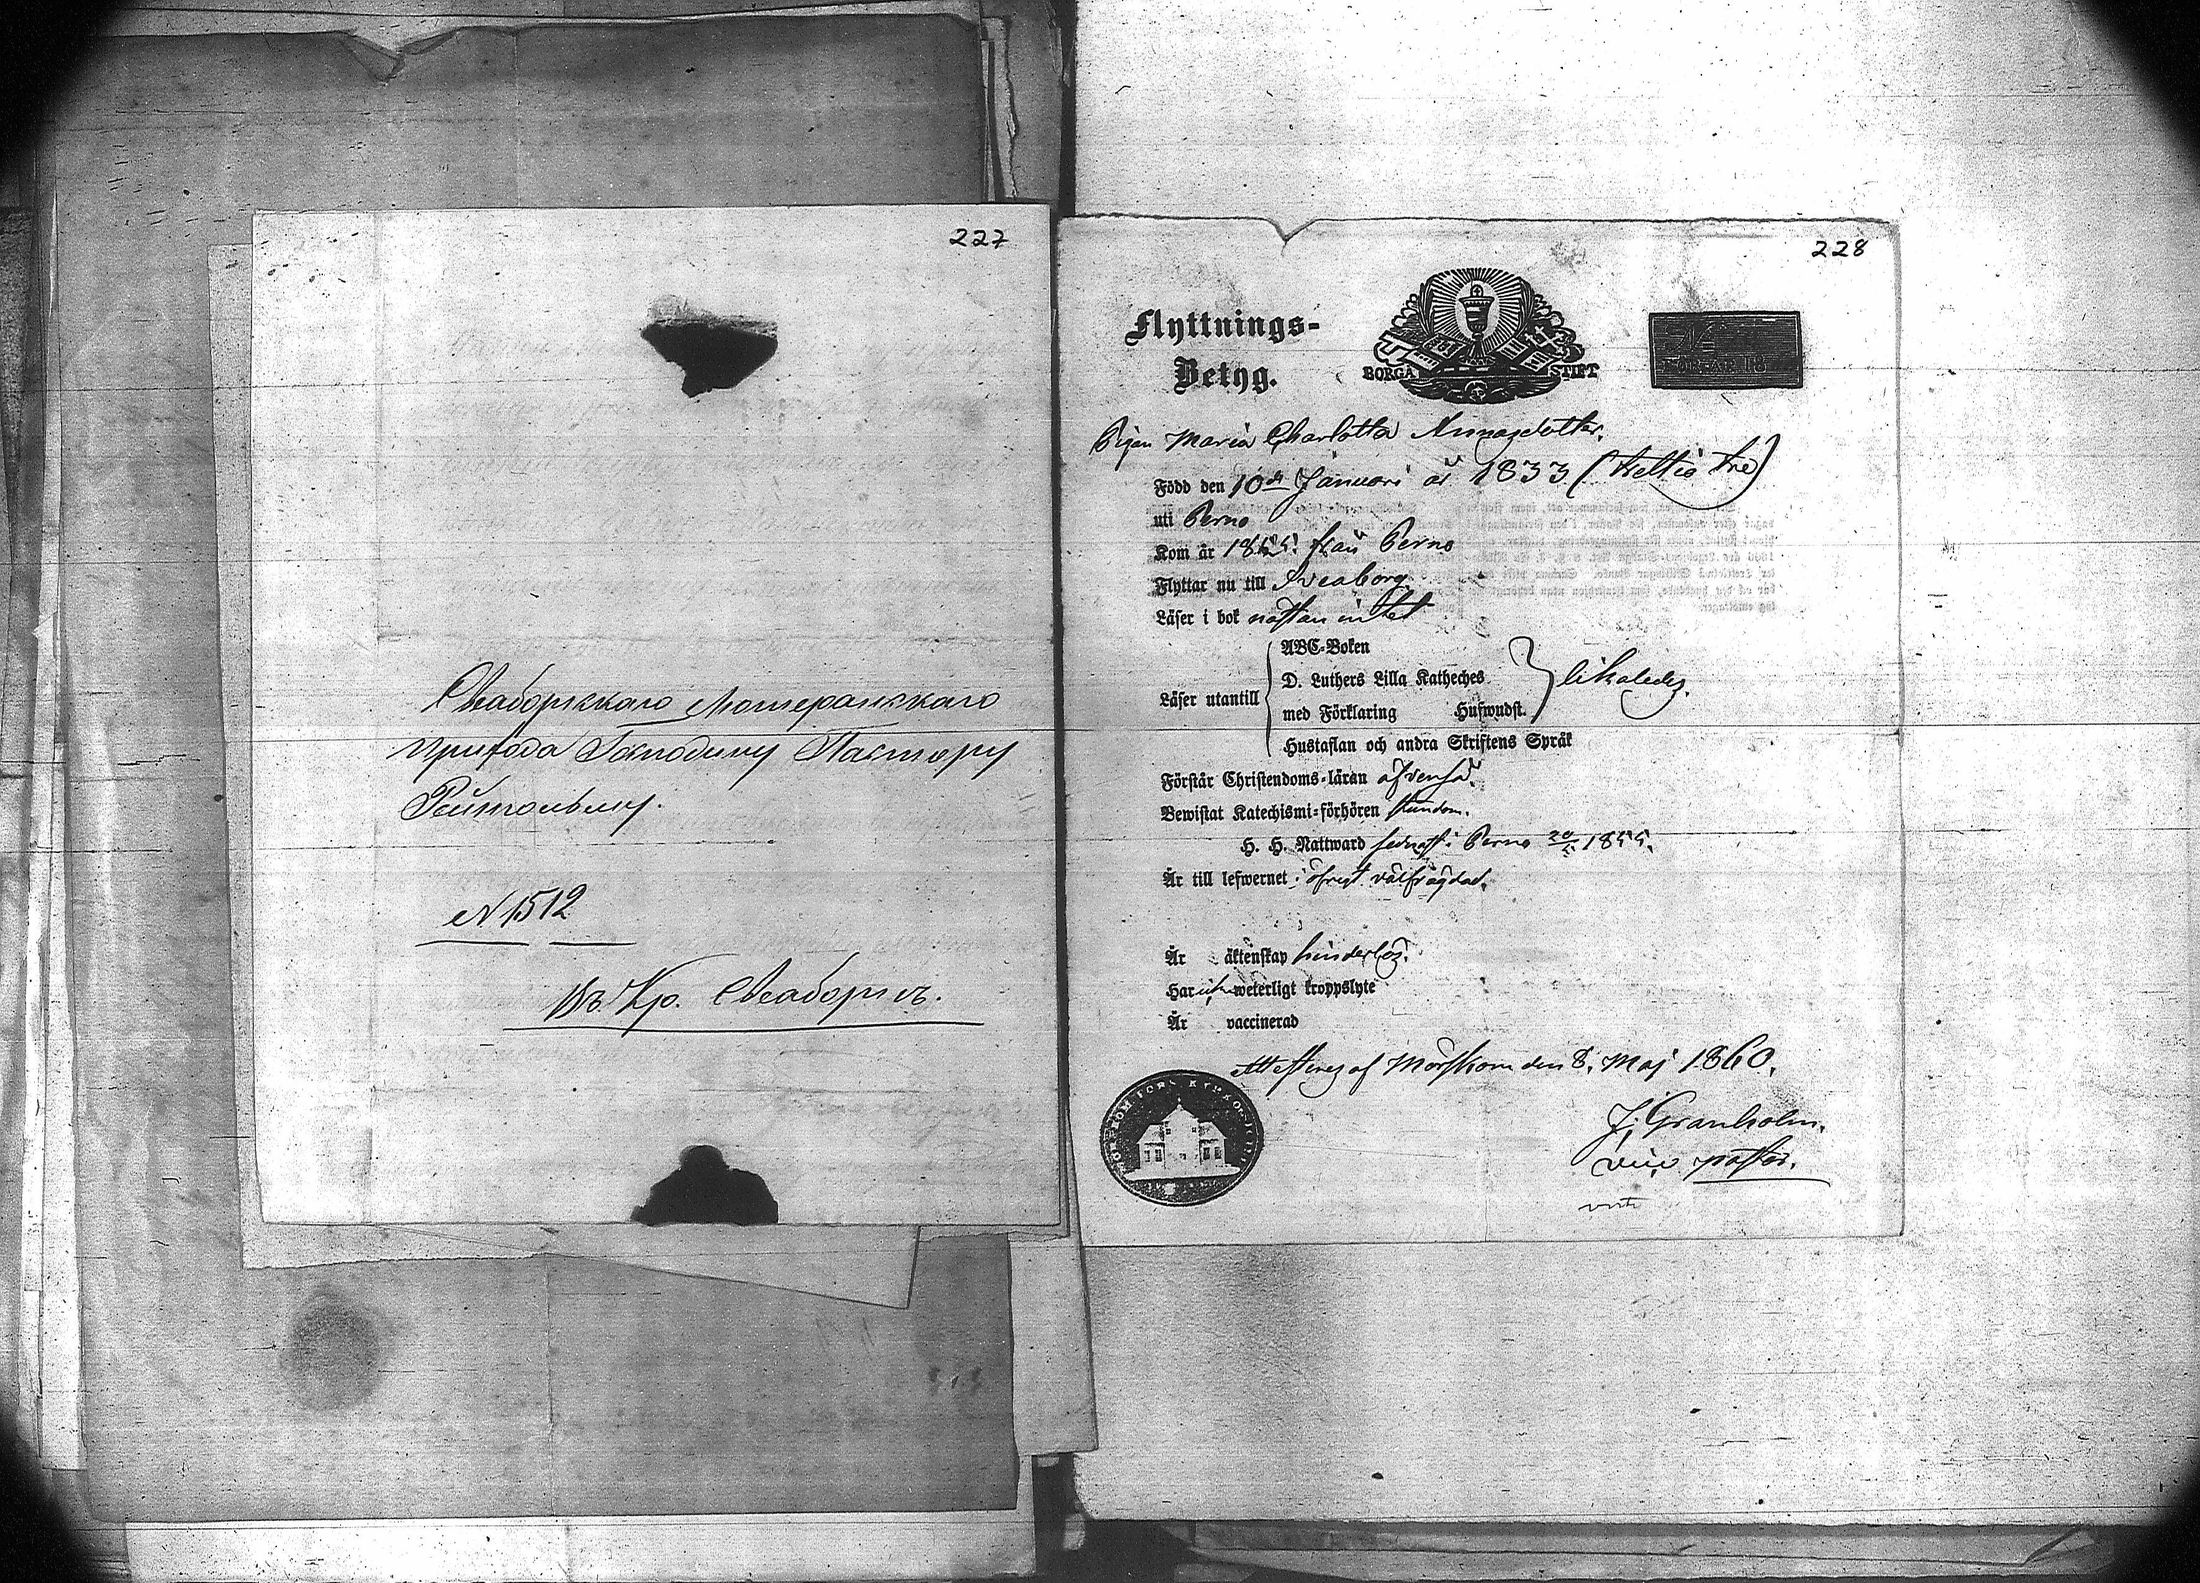 227
Свеаборгскаго Лютеранскаго
прихода Господину Пастору
N 1512
Въ Кр. Свеаборгъ.
228
Flyttnings-
Betyg.
BORGÅ STIFT
Pigan Maria Charlotta Annasdotter.
Född den 10de Januari år 1833 (trettio tre)
uti Perno
Kom år 1855. från Perno
Flyttar nu till Sveaborg
Läser i bok nästan intet
ABC-Boken
D. Luthers Lilla Katheches
Läser utantill likaledes.
med Förklaring Hufwudst.
Hustaflan och andra Skriftens Språk
Förstår Christendoms-läran äfvenså.
Bewistat Katechismi-förhören stundom.
H. H. Nattward sednast i Perno 20/5 1855.
Är till lefwernet i öfrigt välfrägdad.
Är äktenskap hinderlös.
Har icke weterligt kroppslyte
Är vaccinerad
Attesteras af Mörskom den 8. Maj 1860.
J. Granholm.
vice pastor.